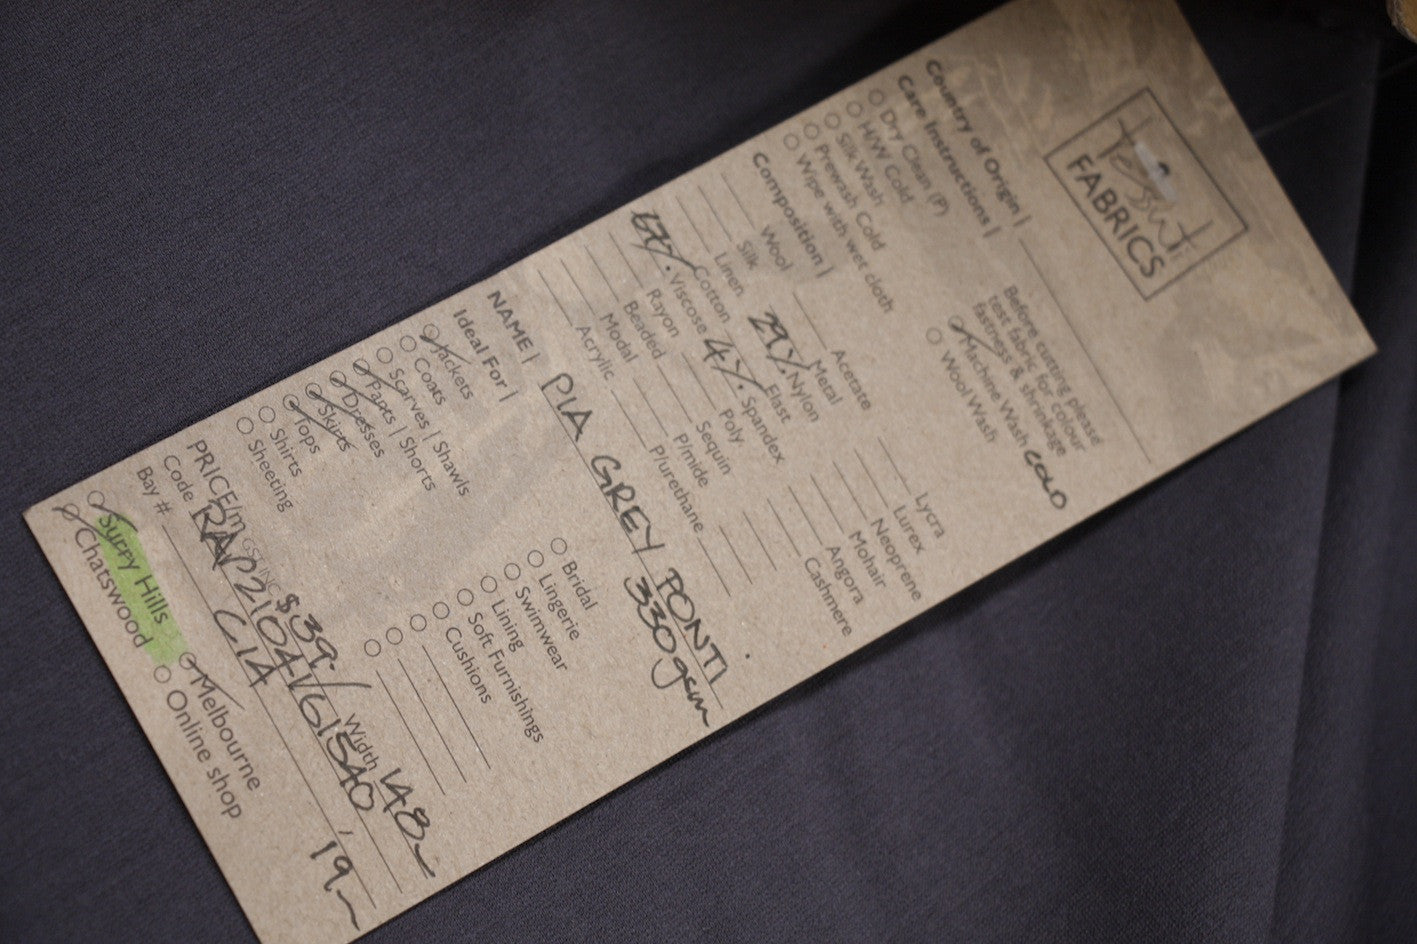 tessuti
FABRICS
Country of Origin |
Care Instructions |
Dry Clean (P)
H/W Cold
Silk Wash
Prewash Cold
Wipe with wet cloth
Before cutting please
test fabric for colour
fastness & shrinkage
Machine Wash COLD
Wool Wash
Composition |
Wool
Silk
Linen
Cotton
67% Viscose
Rayon
Beaded
Modal
Acrylic
Acetate
Metal
29% Nylon
Elast
4% Spandex
Poly
Sequin
P/mide
P/urethane
Lycra
Lurex
Neoprene
Mohair
Angora
Cashmere
NAME | PIA GREY PONTI
330gsm
Ideal For |
Jackets
Coats
Scarves | Shawls
Pants | Shorts
Dresses
Skirts
Tops
Shirts
Sheeting
Bridal
Lingerie
Swimwear
Lining
Soft Furnishings
Cushions
PRICE/m $39.- Width 148
Code
Bay # C1A 19.
Surry Hills
Chatswood
Melbourne
Online shop